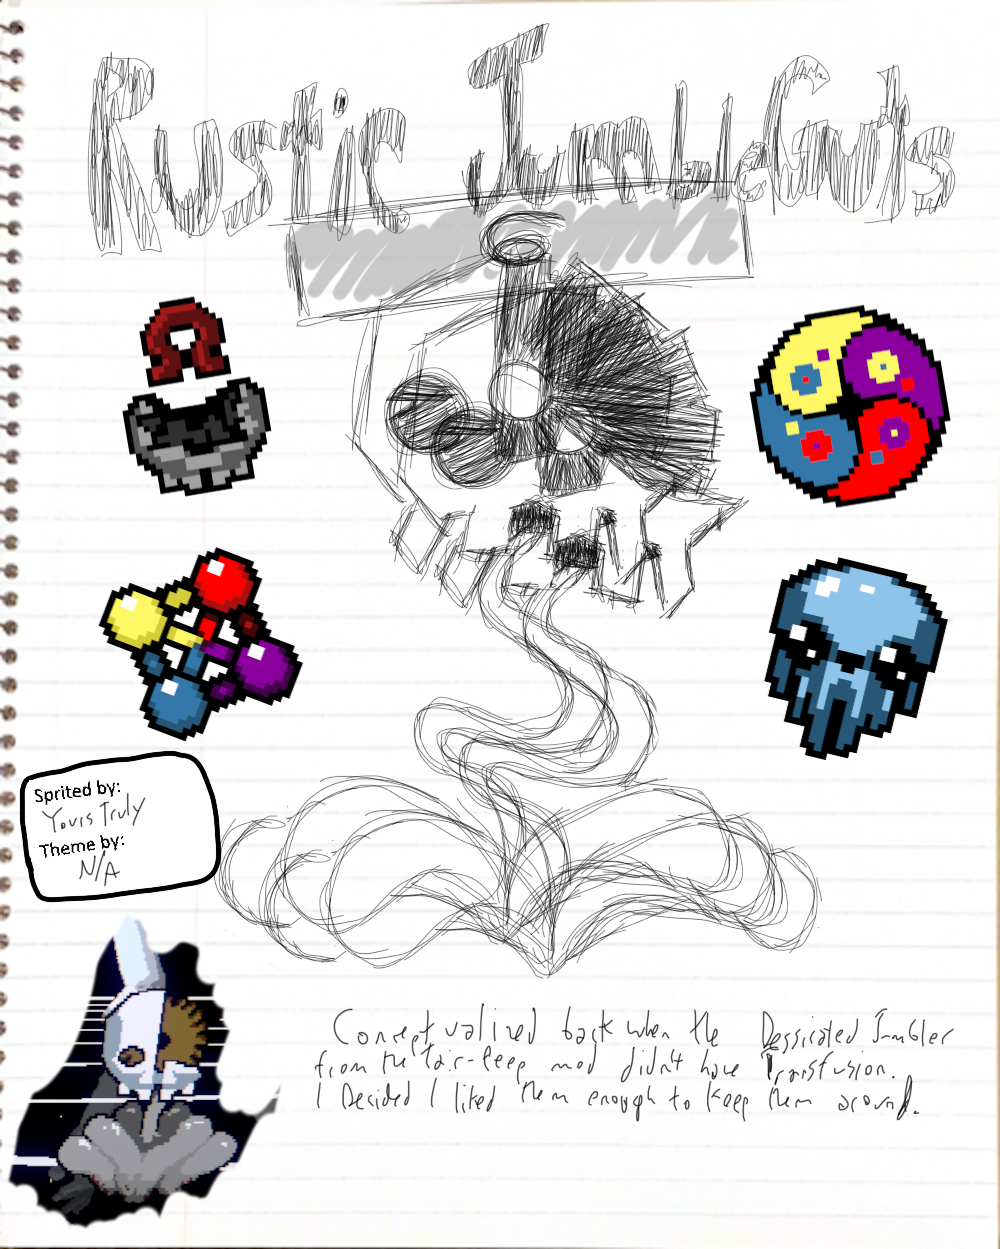 Rustic JumbleGuts
Sprited by:
Yours Truly
Theme by:
N/A
Conceptualized back when the Dessicated Jumbler
from the Fair-Keep mod didn't have Transfusion.
I Decided I liked them enough to keep them around.